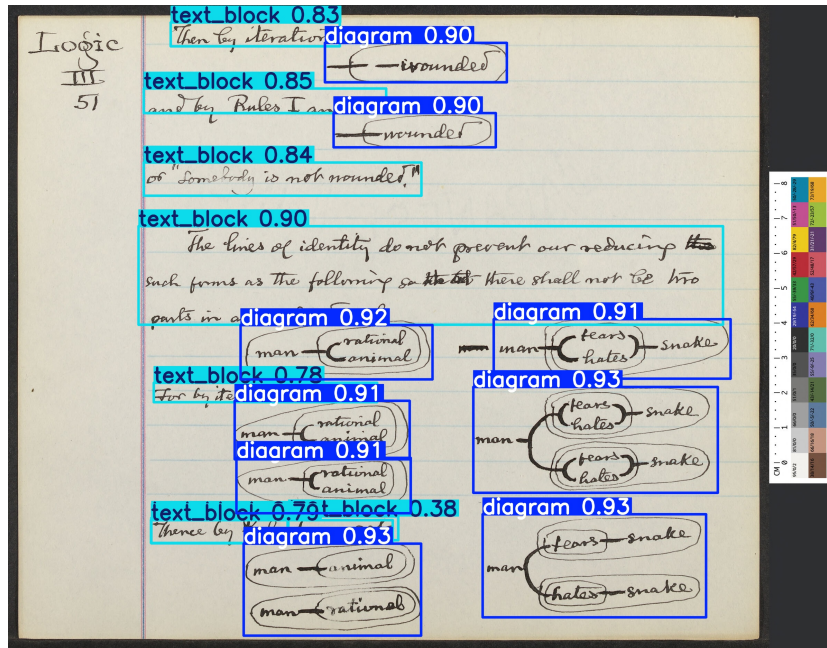 text_block 0.83
Logic
III
51
Then by iteration
diagram 0.90
wounded
text_block 0.85
and by Rules I an
diagram 0.90
wounded
text_block 0.84
or "Somebody is not wounded."
text_block 0.90
The lines of identity do not prevent our reducing
such forms as the following so there shall not be two
parts in a
diagram 0.92
man rational
animal
diagram 0.91
man fears
hates snake
text_block 0.78
For by ite
diagram 0.91
man rational
animal
diagram 0.91
man rational
animal
diagram 0.93
man
fears
hates snake
fears
hates snake
text_block 0.79
text_block 0.38
Thence by
diagram 0.93
man animal
man rational
diagram 0.93
man
fears snake
hates snake
CM 0 1 2 3 4 5 6 7 8